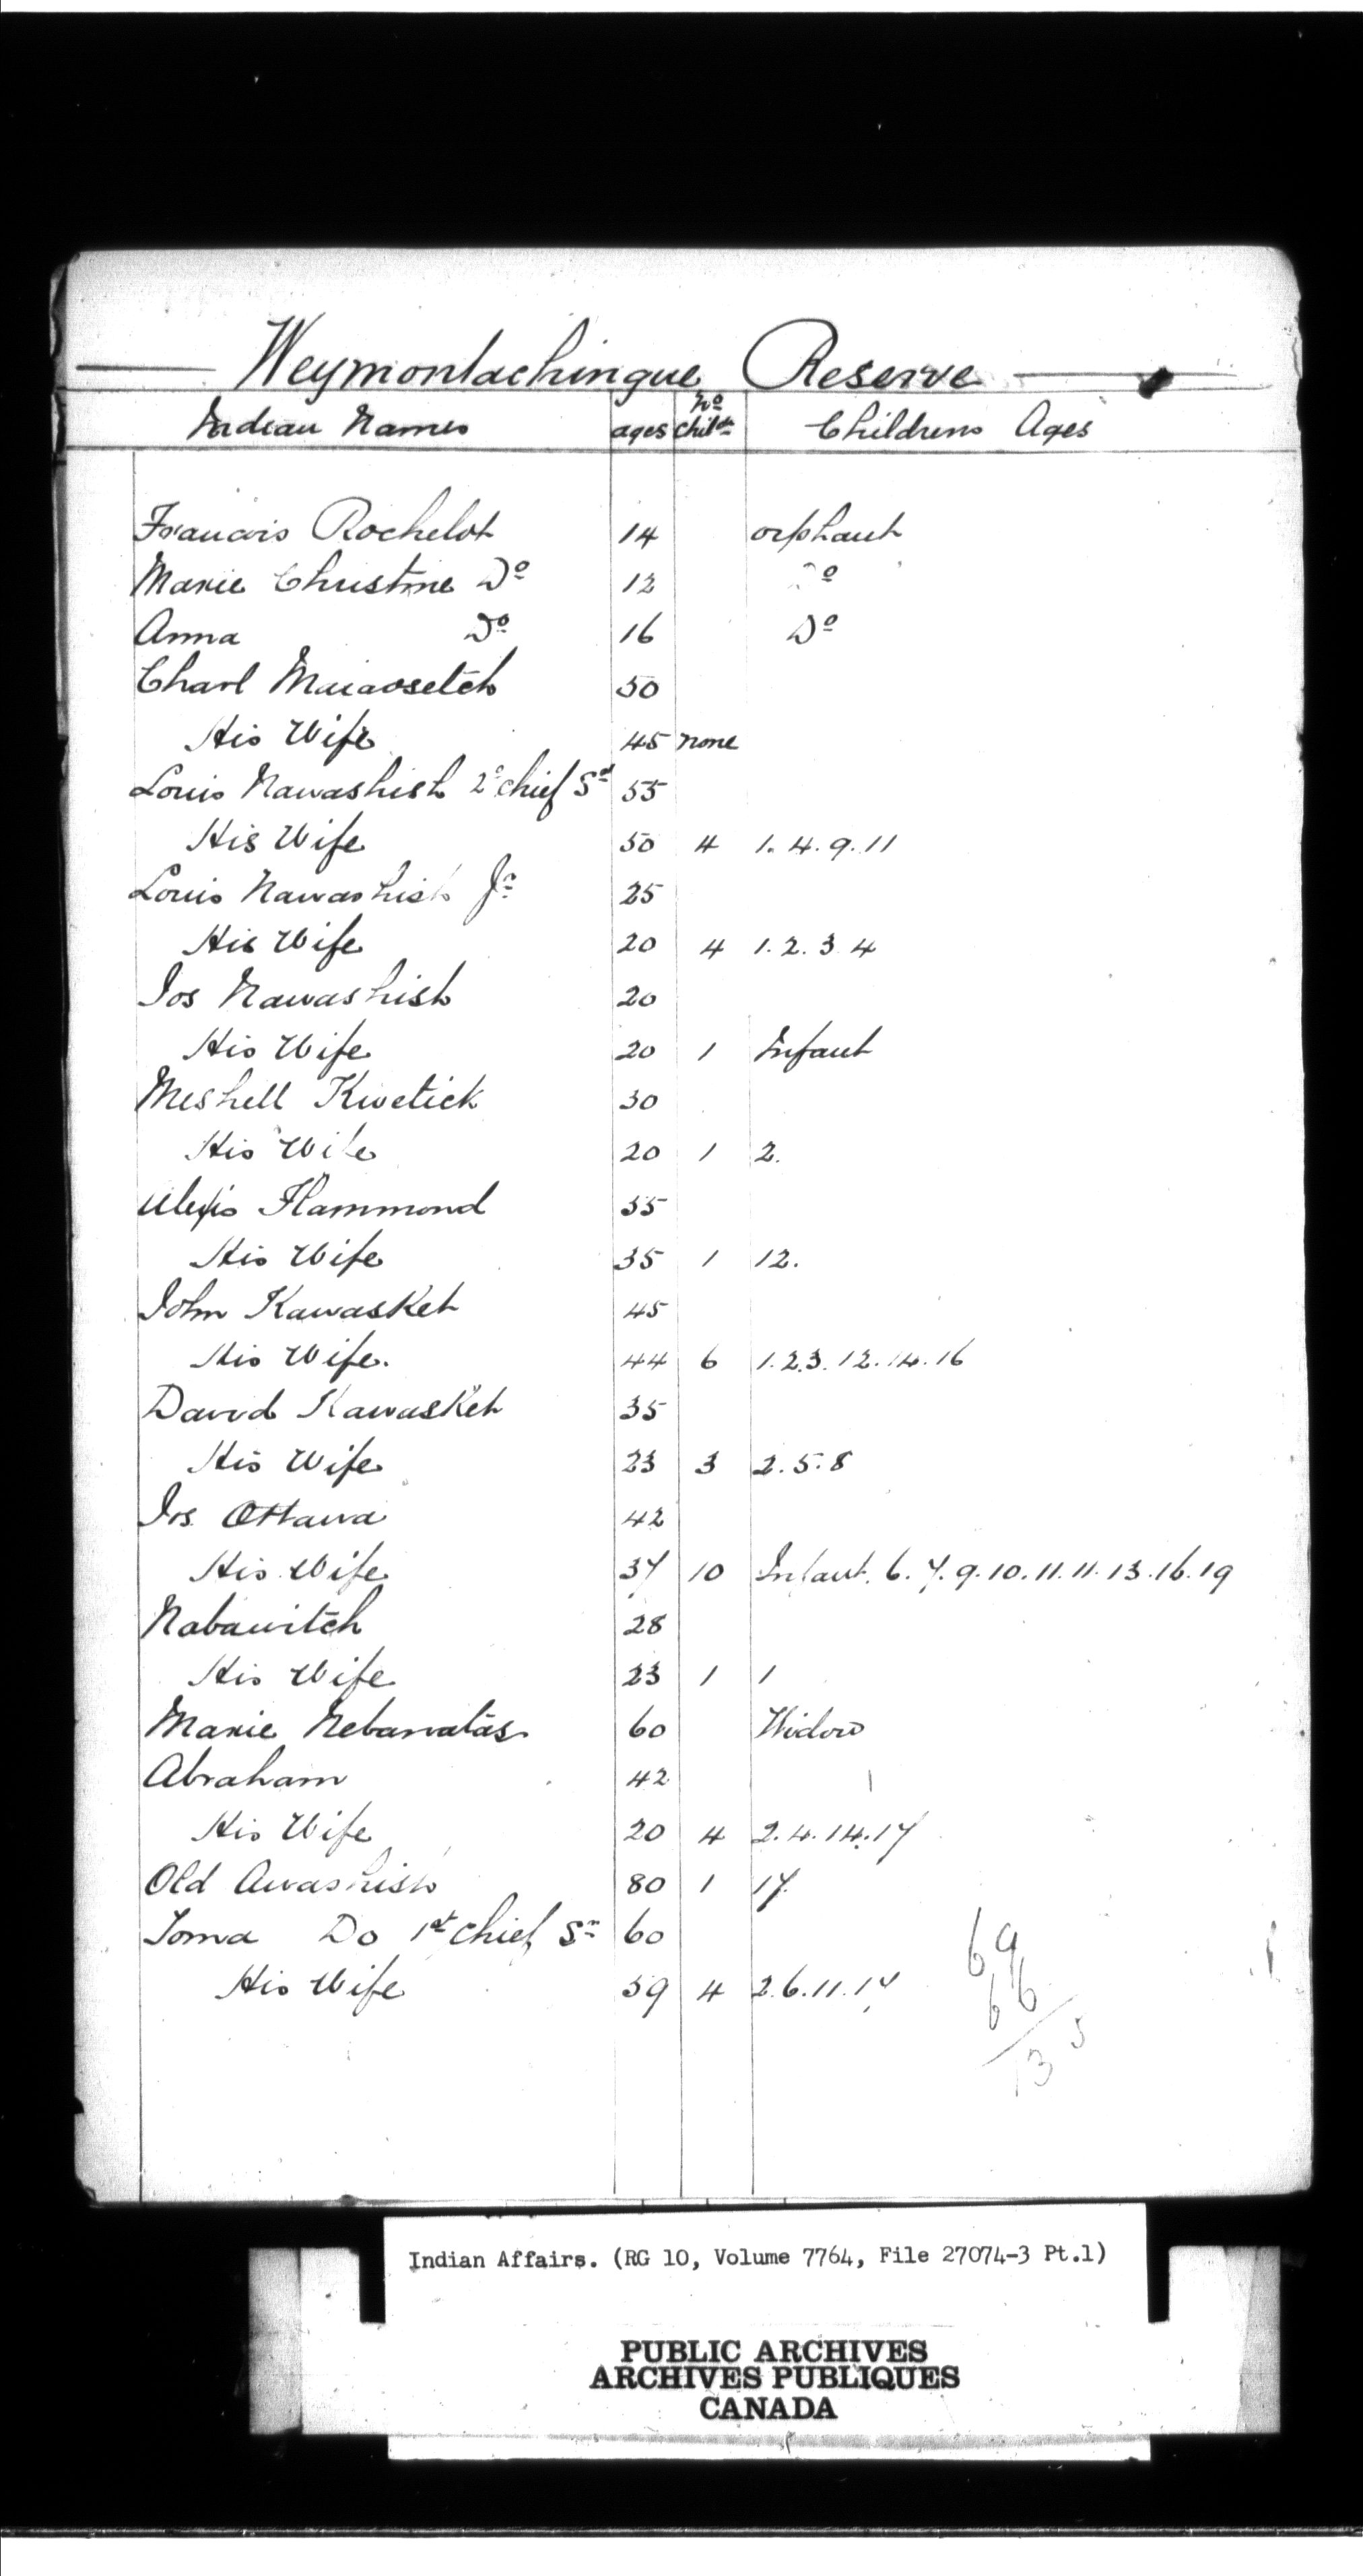 Weymontachingue Reserve
Indian Names ages No Childn Childrens Ages
Francois Rochelot 14 orphant
Marie Christine Do 12 Do
Anna Do 16 Do
Charl Maiaosetch 50
His Wife 45 none
Louis Nawashish 2d chief Sr 55
His Wife 50 4 1. 4. 9. 11
Louis Nawashish Jr 25
His Wife 20 4 1. 2. 3 4
Jos Nawashish 20
His Wife 20 1 Infant
Meshell Kwetick 30
His Wife 20 1 2.
Alexis Flammond 55
His Wife 35 1 12.
John Kawasket 45
His Wife. 44 6 1. 2. 3. 12. 14. 16
David Kawasket 35
His Wife 23 3 2. 5. 8
Jos Ottawa 42
His Wife 37 10 Infant. 6. 7. 9. 10. 11. 11. 13. 16. 19
Nabawitch 28
His Wife 23 1 1
Marie Nebawatas 60 Widow
Abraham 42
His Wife 20 4 2. 4. 14. 17
Old Awashish 80 1 17.
Toma Do 1st Chief Sr 60
His Wife 59 4 2. 6. 11. 17
69
66
135
Indian Affairs. (RG 10, Volume 7764, File 27074-3 Pt.1)
PUBLIC ARCHIVES
ARCHIVES PUBLIQUES
CANADA